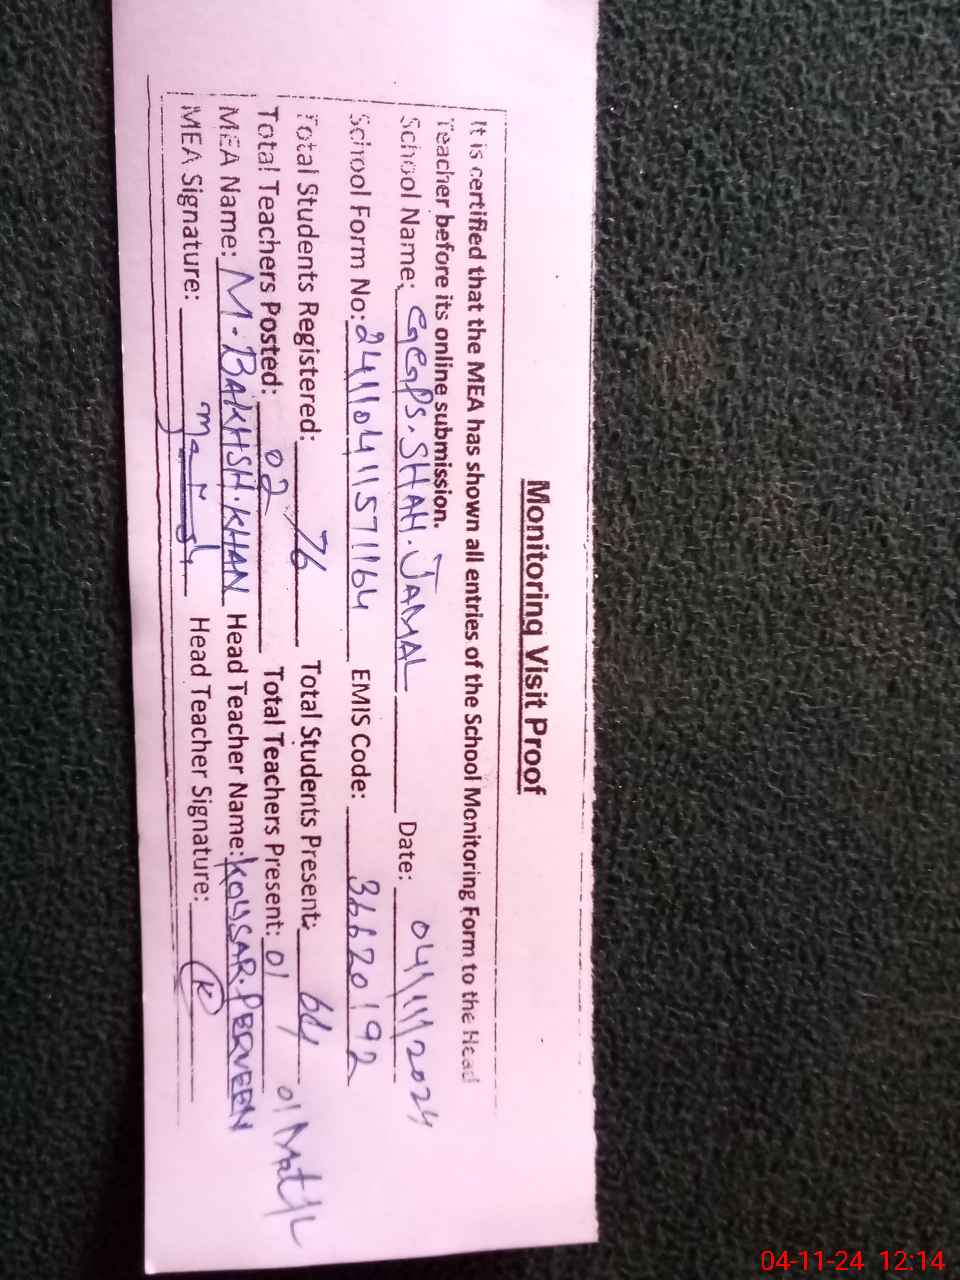 Monitoring Visit Proof
It is certified that the MEA has shown all entries of the School Monitoring Form to the Head
Teacher before its online submission.
School Name: GGPS. SHAH. JAMAL Date: 04/11/2024
School Form No: 24110411571164 EMIS Code: 36620192
Total Students Registered: 76 Total Students Present: 64
Total Teachers Posted: 02 Total Teachers Present: 01 01 Mat/L
MEA Name: M. BAKHSH. KHAN Head Teacher Name: KOUSAR. PERVEEN
MEA Signature: Head Teacher Signature: K
04-11-24 12:14